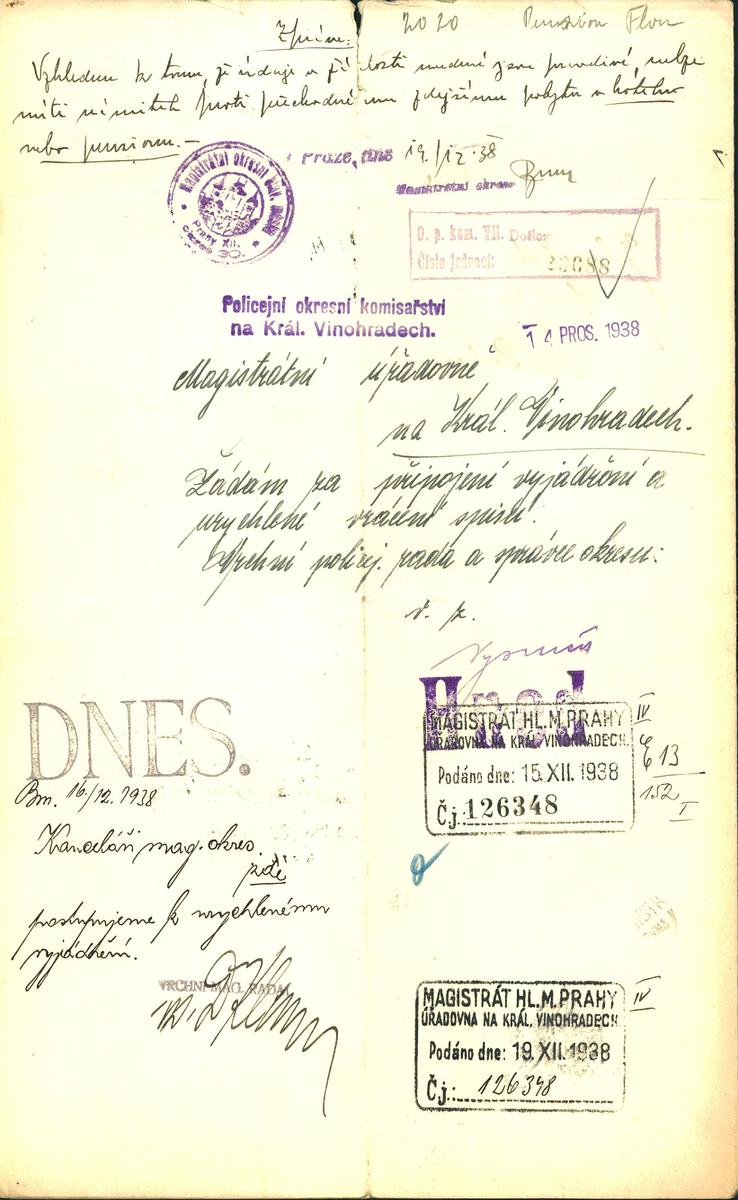 2020
Zpráva:
Vzhledem k tomu, že údaje v žádosti uvedené jsou pravdivé, nelze
míti námitek proti přechodnému zdejšímu pobytu v hotelu
nebo pensionu.-
V Praze, dne 19./12.38
Magistrátní okresní
Prahy XII.
O. p. kom. VII. Došlo:
Číslo jednací:
Policejní okresní komisařství
na Král. Vinohradech.
14 PROS. 1938
Magistrátní úřadovně
na Král. Vinohradech.
Žádám za připojení vyjádření a
urychlené vrácení spisu.
Vrchní policej. rada a správce okresu:
v. z.
Hned
DNES.
MAGISTRÁT HL. M. PRAHY
ÚŘADOVNA NA KRÁL. VINOHRADECH.
Podáno dne: 15. XII. 1938
Č.j. 126348
IV
E 13
152
I
16/12. 1938
Kanceláři mag. okres.
zde
postupujeme k urychlenému
vyjádření.
VRCHNÍ MAG. RADA:
MAGISTRÁT HL. M. PRAHY
ÚŘADOVNA NA KRÁL. VINOHRADECH
Podáno dne: 19. XII. 1938
Č.j.: 126348
IV